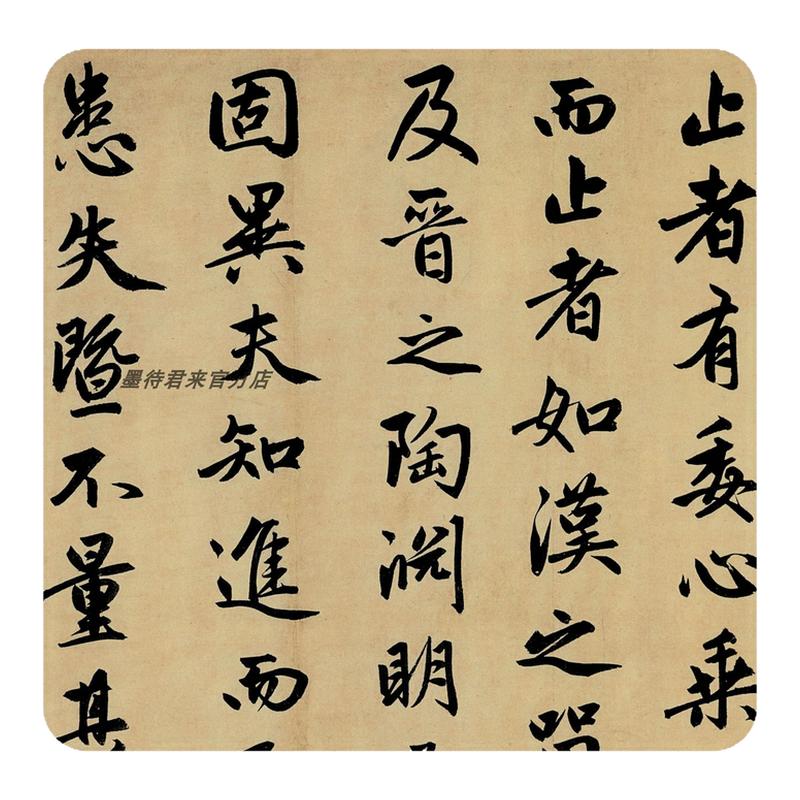 止者有委心乘
而止者如漢之
及晉之陶淵明
固異夫知進而
患失暨不量其
墨待君来官方店